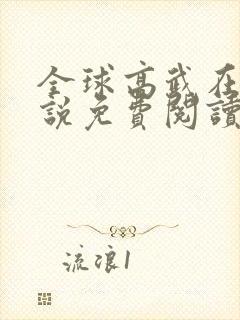 全球高武在
說免費閱讀
流浪1